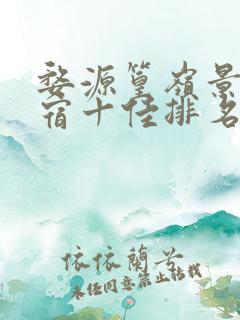 婺源篁嶺景
宿十佳排名
依依蘭兮
未经同意禁止转载